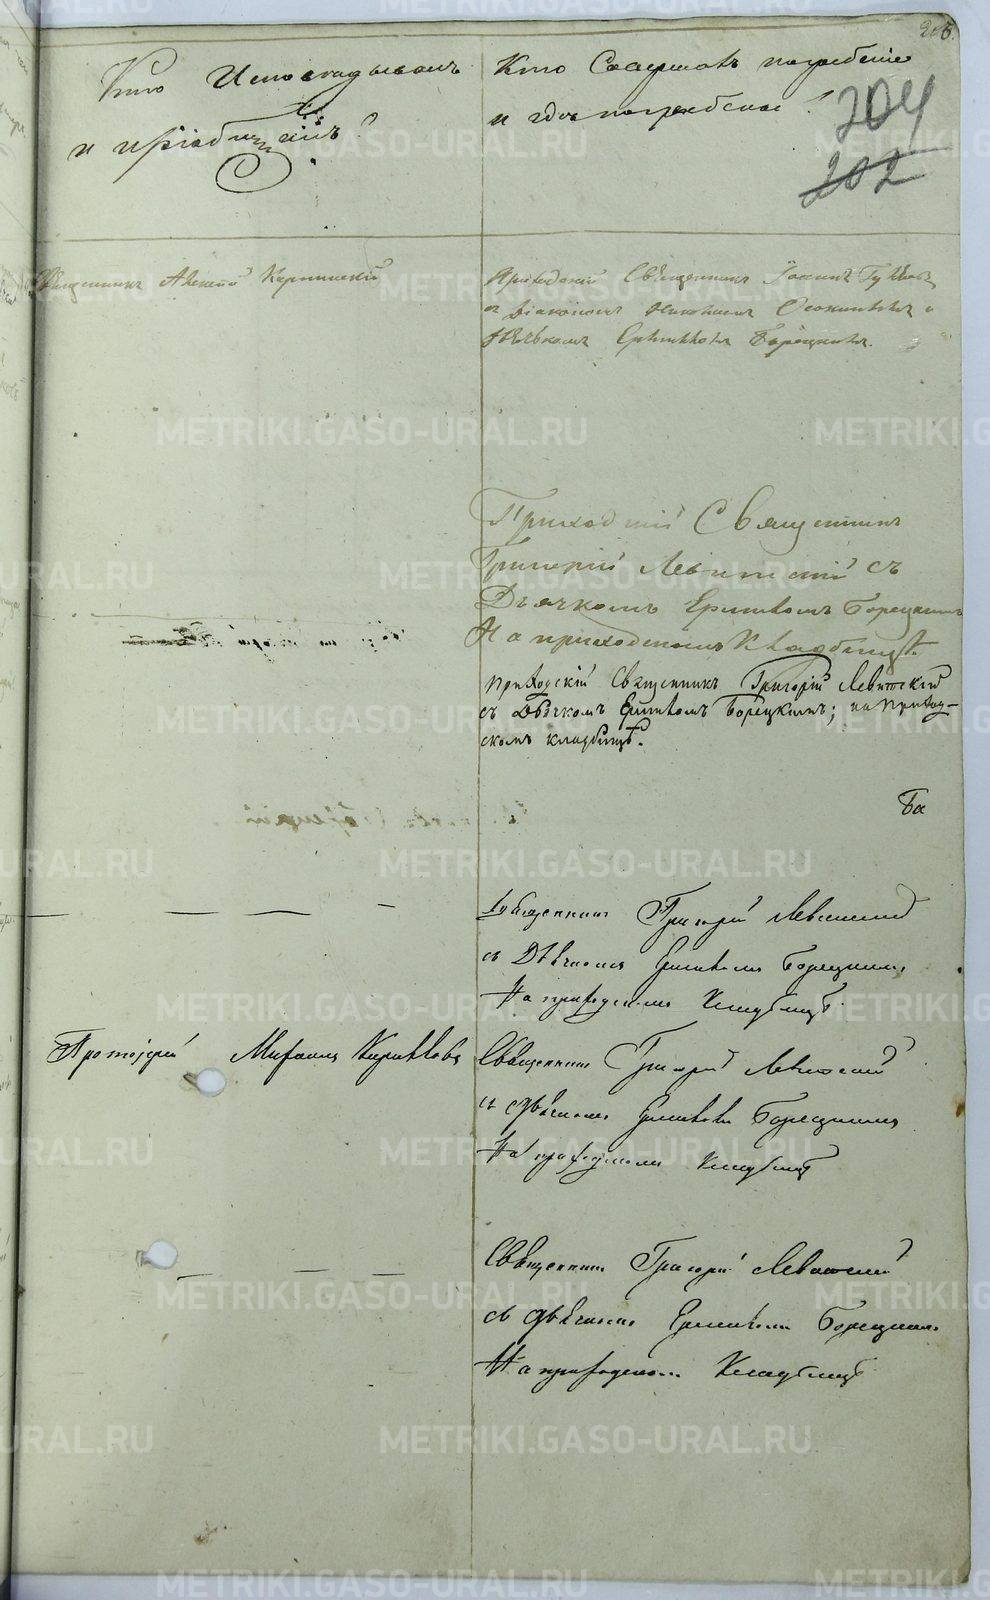 205.
Кто Исповѣдывалъ
и пріобщалъ?
Кто Совершалъ погребеніе
и гдѣ погребены?
204
202
Священникъ Алексѣй Карпинскій
Приходскій Священникъ Іоаннъ
съ Діакономъ Николаемъ и
Дьячкомъ Ермиломъ Борецкимъ.
Приходскій Священникъ
Григорій Левитскій съ
Дьячкомъ Ермиломъ Борецкимъ
На приходскомъ Кладбищѣ.
приходскій Священникъ Григорій Левитскій
съ Дьячкомъ Ермиломъ Борецкимъ; на приход-
скомъ кладбищѣ.
Ба
Священникъ Григорій Левитскій
съ Дьячкомъ Ермиломъ Борецкимъ
На приходскомъ Кладбищѣ
Протоіерей Михаилъ
Священникъ Григорій Левитскій
съ дьячкомъ Ермиломъ Борецкимъ
На приходскомъ Кладбищѣ
Священникъ Григорій Левитскій
съ дьячкомъ Ермиломъ Борецкимъ
На приходскомъ Кладбищѣ
METRIKI.GASO-URAL.RU